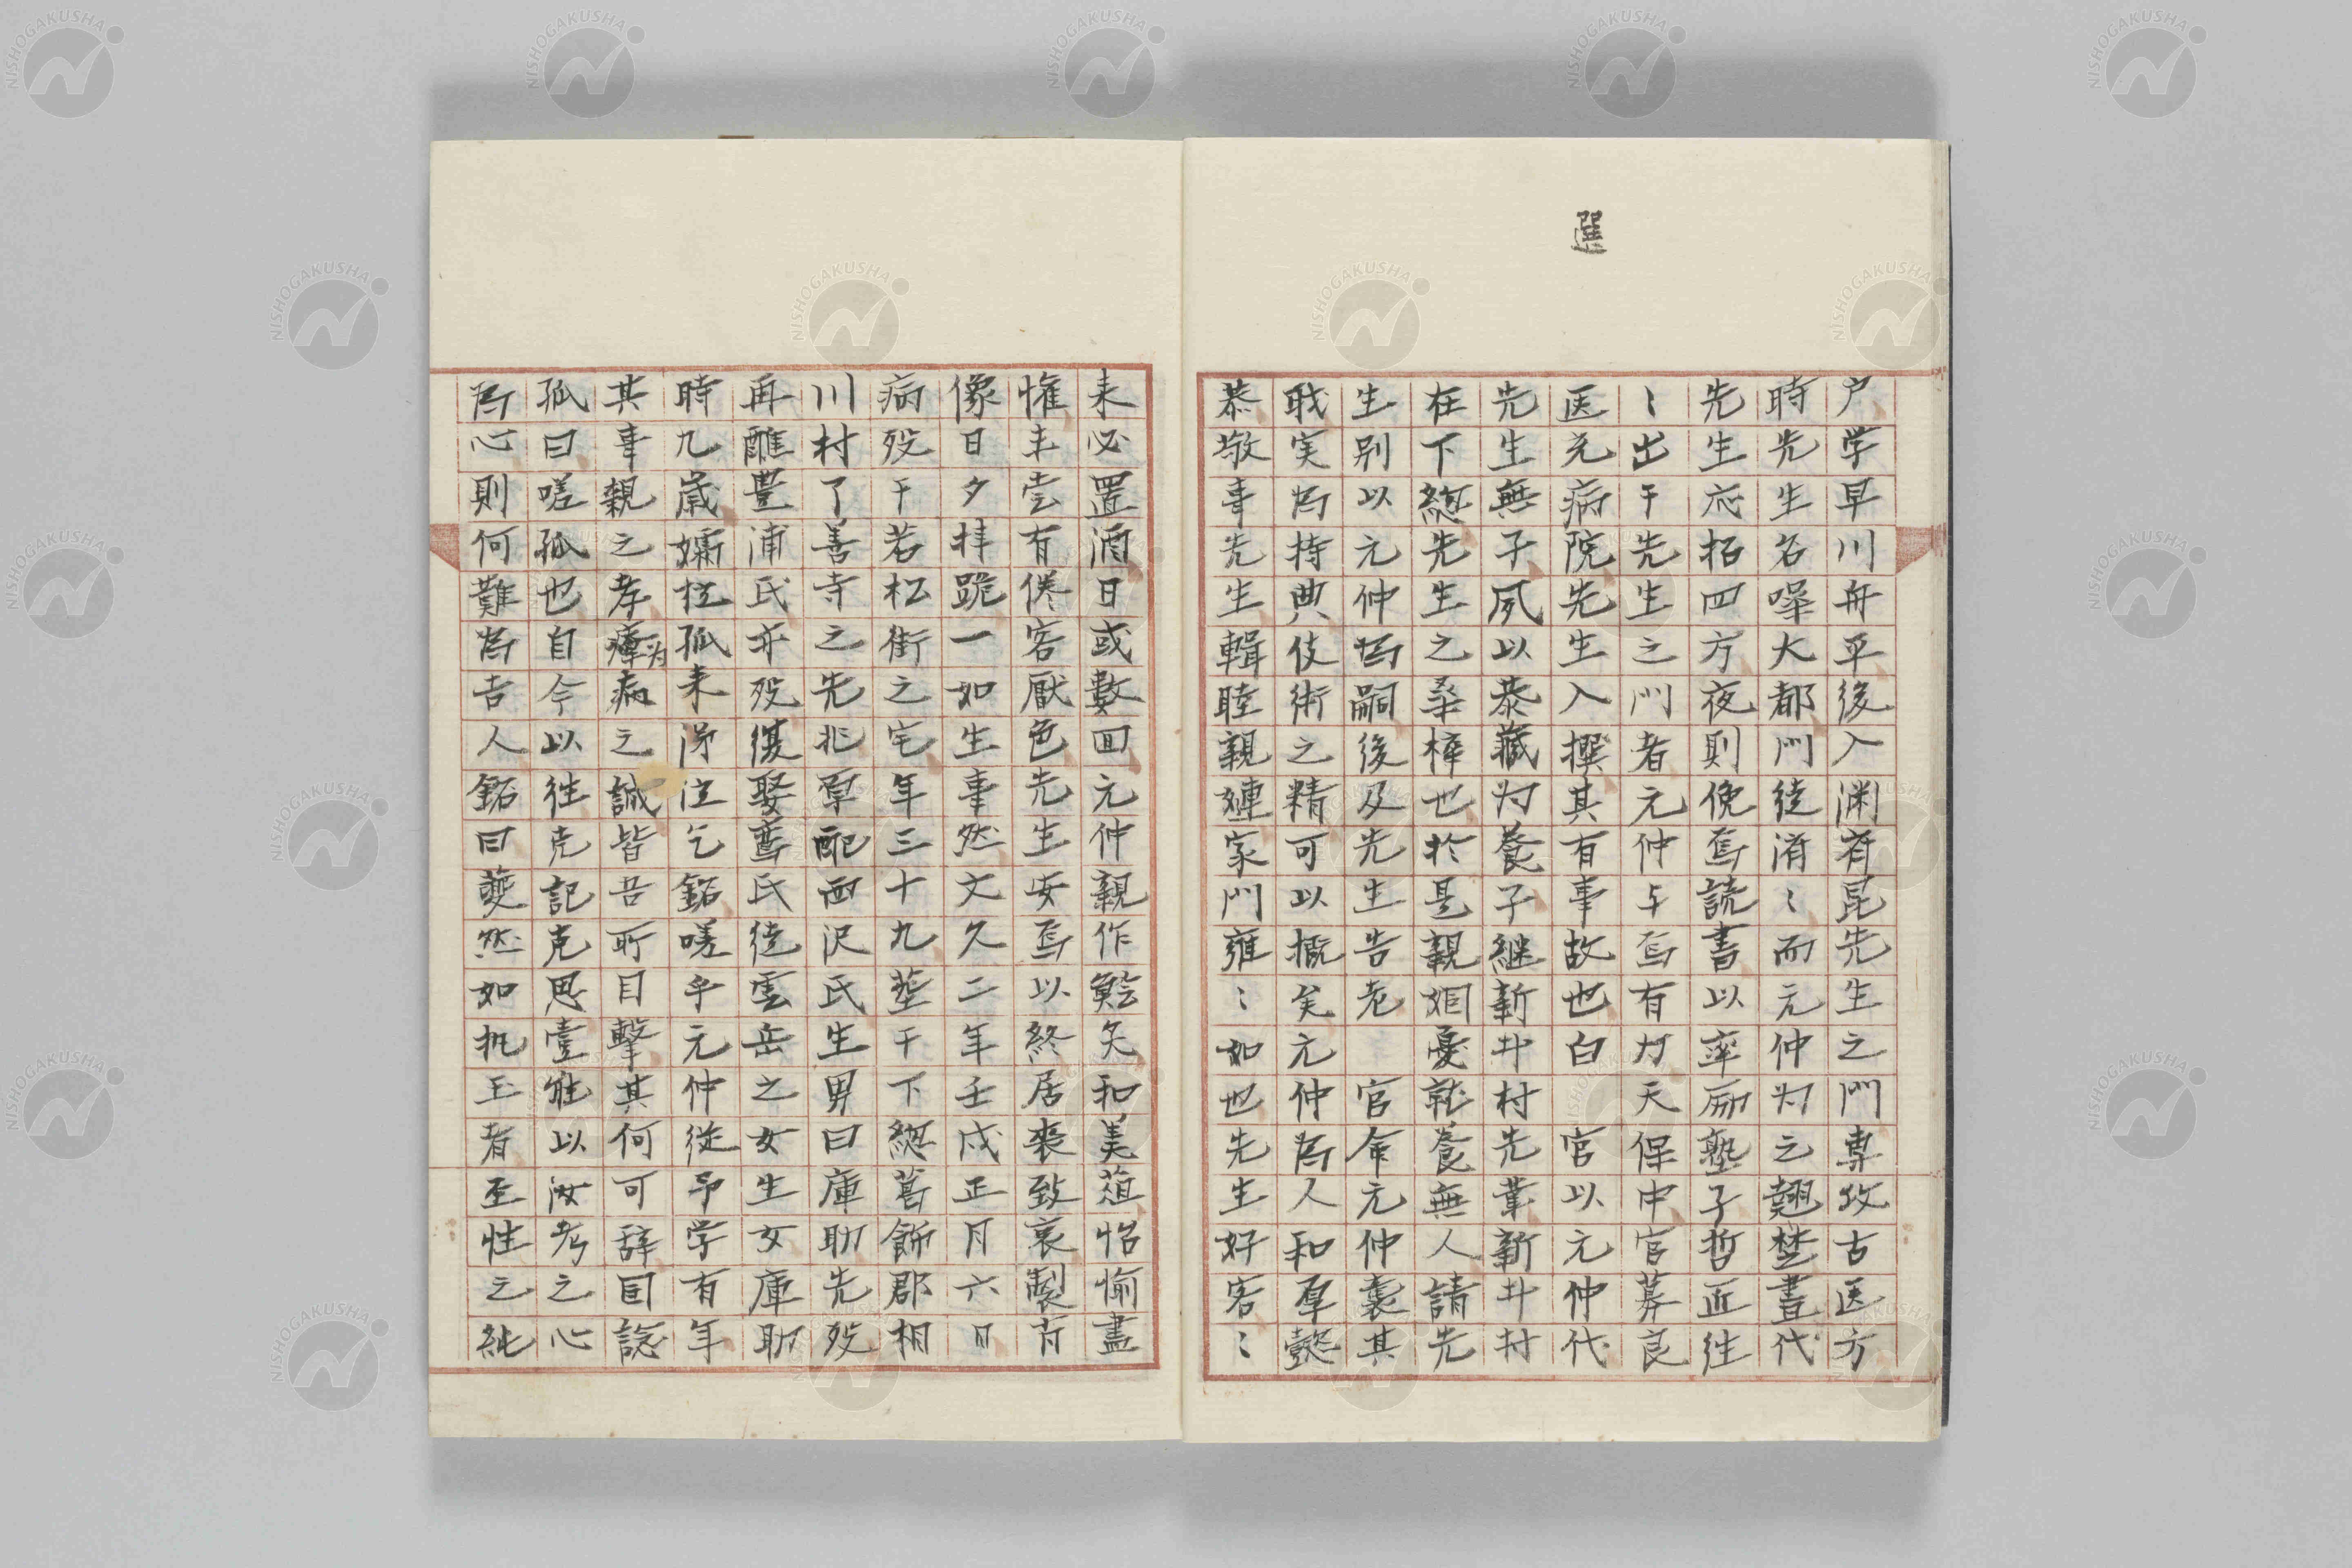 選
戸学早川舟平後入渊斉昆先生之門専攻古医方
時先生名噪大都門徒済〻而元仲为之翹楚昼代
先生応招四方夜則俛焉読書以率励塾子哲匠往
〻出于先生之门者元仲与焉有为天保中官募良
医充病院先生入撰其有事故也白　官以元仲代
先生無子夙以恭蔵为養子継新井村先業新井村
在下総先生之桑梓也於是親姻憂就養無人請先
生別以元仲為嗣後及先生告老　官命元仲襲其
職実為持典伎術之精可以概矣元仲為人和厚懿
恭敬事先生輯睦親連家門雍〻如也先生好客〻
来必置酒日或數回元仲親作鱠炙和美葅怡愉盡
懽未嘗有倦容厭色先生安焉以終居喪致哀製肖
像日夕拝跪一如生事然文久二年壬戌正月六日
病殁于若松街之宅年三十九葬于下総葛飾郡相
川村了善寺之先兆厚配西沢氏生男曰庫助先殁
再醮豊浦氏亦殁復娶鸞氏徒雲岳之女生女庫助
時九歳孀控孤来涕泣乞銘嗟乎元仲従予学有年
其事親之孝瘴为病之誠皆吾所目擊其何可辞因諗
孤曰嗟孤也自今以往克記克思壹能以汝考之心
為心則何難為吉人銘曰蘷然如执玉者至性之純